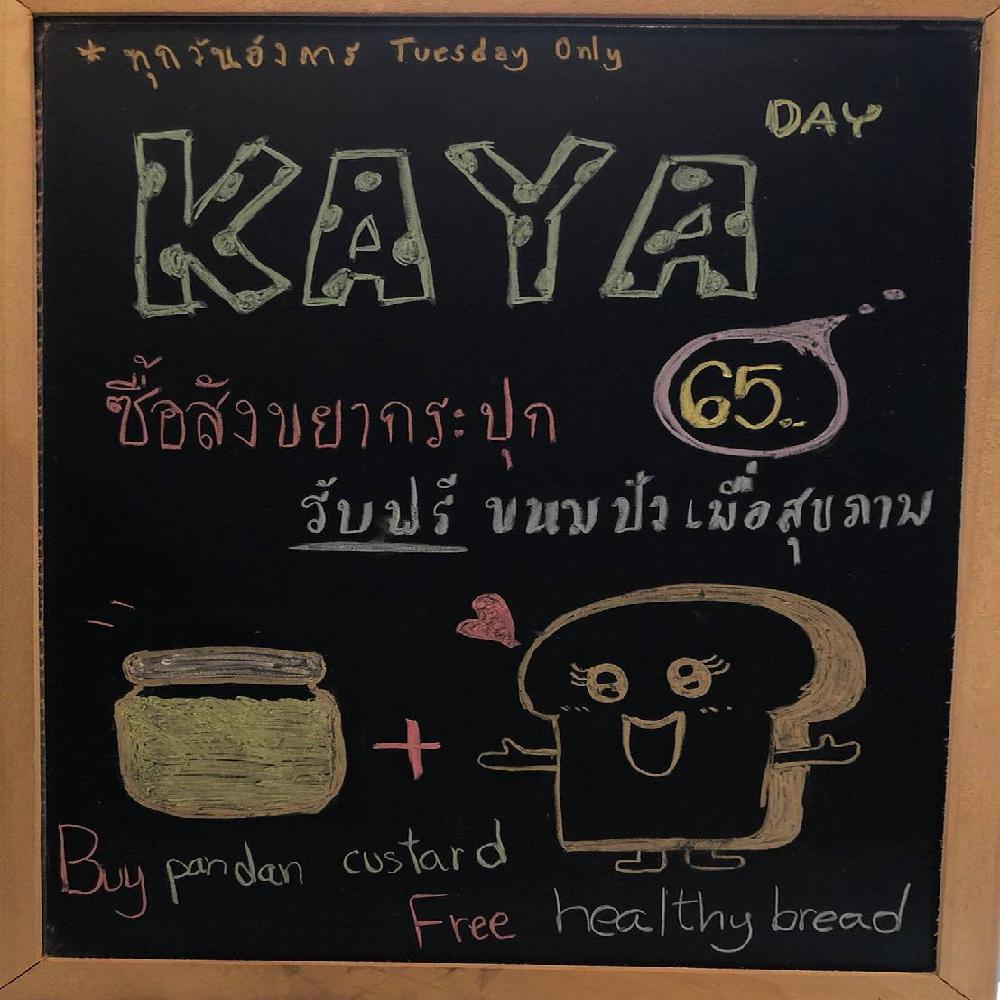 * ทุกวันอังคาร Tuesday Only
KAYA DAY
ซื้อสังขยากระปุก 65.-
รับฟรี ขนมปังเพื่อสุขภาพ
+
Buy pandan custard
Free healthy bread